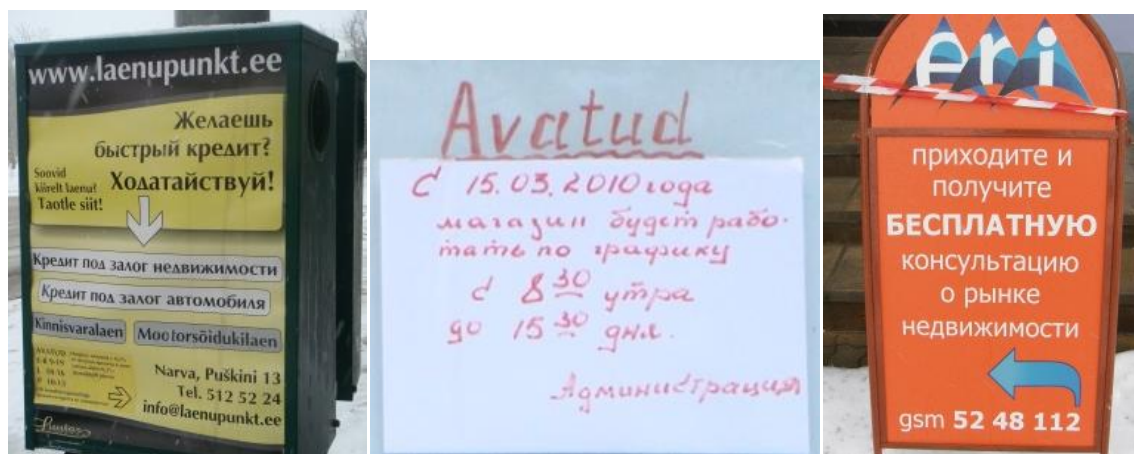 www.laenupunkt.ee
Желаешь
быстрый кредит?
Soovid
kiirelt laenu!
Taotle siit!
Ходатайствуй!
Кредит под залог недвижимости
Кредит под залог автомобиля
Kinnisvaralaen
Mootorsõidukilaen
AVATUD
Narva, Puškini 13
Tel. 512 52 24
info@laenupunkt.ee
Avatud
С 15.03.2010 года
магазин будет рабо-
тать по графику
с 8 30 утра
до 15 30 дня.
Администрация
eri
приходите и
получите
БЕСПЛАТНУЮ
консультацию
о рынке
недвижимости
gsm 52 48 112